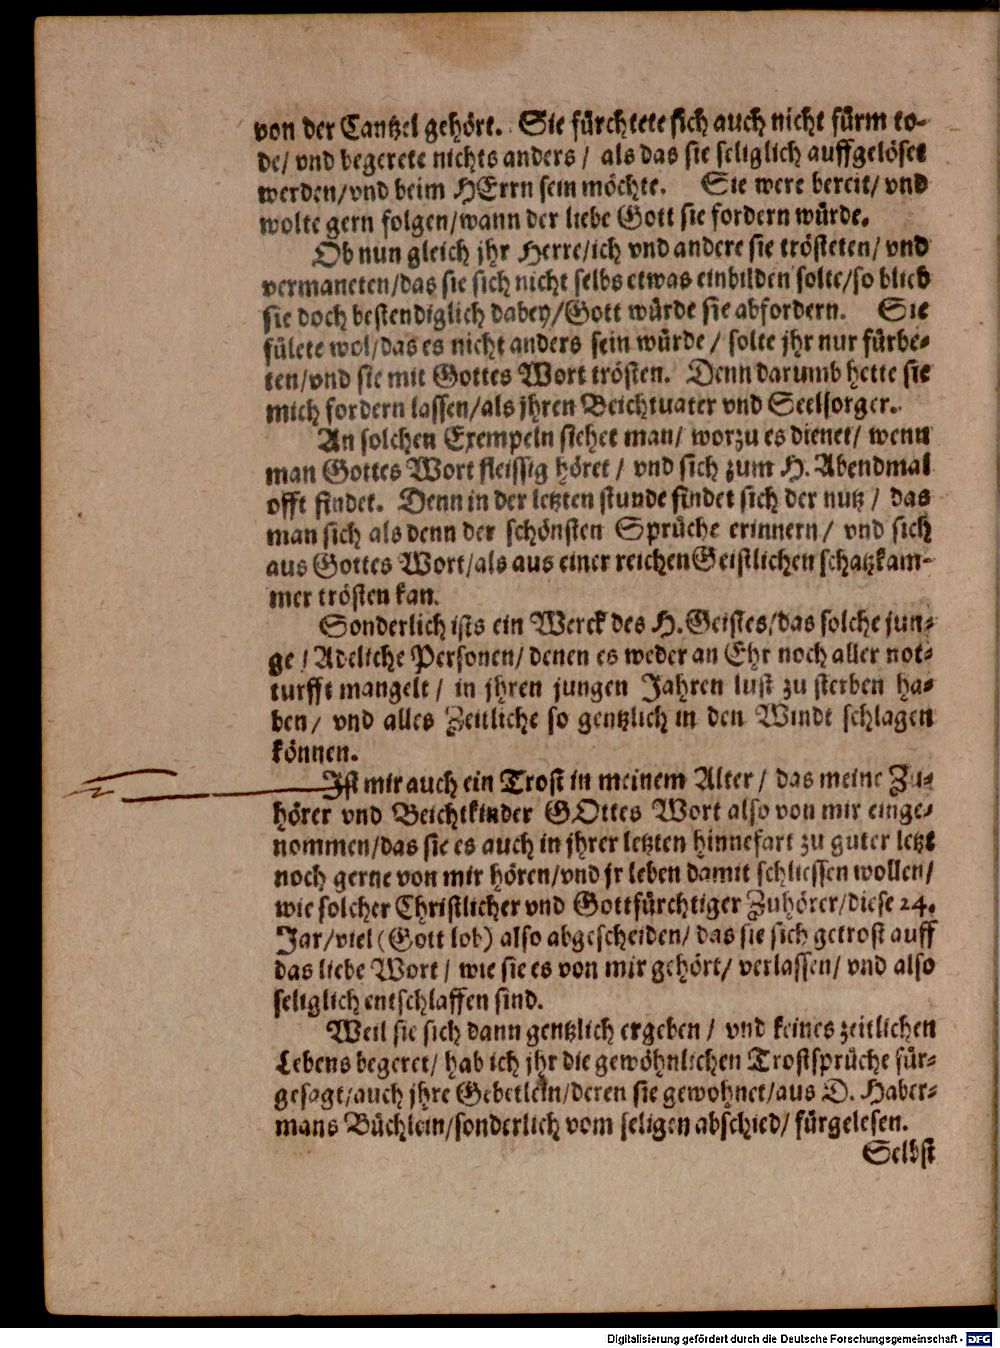 von der Cantzel gehört. Sie fürchtete sich auch nicht fürm to-
de/ vnd begerete nichts anders/ als das sie seliglich auffgelöset
werden/vnd beim HErrn sein möchte. Sie were bereit/ vnd
wolte gern folgen/wann der liebe Gott sie fordern würde.
Ob nun gleich jhr Herre/ich vnd andere sie trösteten/ vnd
vermaneten/das sie sich nicht selbs etwas einbilden solte/so blieb
sie doch bestendiglich dabey/Gott würde sie abfordern. Sie
fülete wol/das es nicht anders sein würde/ solte jhr nur fürbe-
ten/vnd sie mit Gottes Wort trösten. Denn darumb hette sie
mich fordern lassen/als jhren Beichtuater vnd Seelsorger.
An solchen Exempeln siehet man/ worzu es dienet/ wenn
man Gottes Wort fleissig höret/ vnd sich zum H. Abendmal
offt findet. Denn in der letzten stunde findet sich der nutz/ das
man sich als denn der schönsten Sprüche erinnern/ vnd sich
aus Gottes Wort/als aus einer reichen Geistlichen schatzkam-
mer trösten kan.
Sonderlich ists ein Werck des H. Geistes/das solche jun-
ge/ Adeliche Personen/ denen es weder an Ehr noch aller not-
turfft mangelt/ in jhren jungen Jahren lust zu sterben ha-
ben/ vnd alles Zeitliche so gentzlich in den Windt schlagen
können.
Ist mir auch ein Trost in meinem Alter/ das meine Zu-
hörer vnd Beichtkinder GOttes Wort also von mir einge-
nommen/das sie es auch in jhrer letzten hinnefart zu guter letzt
noch gerne von mir hören/vnd jr leben damit schliessen wollen/
wie solcher Christlicher vnd Gottfürchtiger Zuhörer/diese 24.
Jar/viel (Gott lob) also abgescheiden/ das sie sich getrost auff
das liebe Wort/ wie sie es von mir gehört/ verlassen/ vnd also
seliglich entschlaffen sind.
Weil sie sich dann gentzlich ergeben/ vnd keines zeitlichen
Lebens begeret/ hab ich jhr die gewöhnlichen Trostsprüche für-
gesagt/auch jhre Gebetlein/deren sie gewohnet/aus D. Haber-
mans Büchlein/sonderlich vom seligen abschied/ fürgelesen.
Selbst
Digitalisierung gefördert durch die Deutsche Forschungsgemeinschaft - DFG